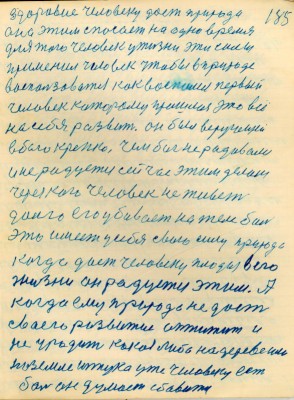 185
здоровие человеку дает природа
она этим спосает на одно время
для того человек у жизни эти силы
применил человек чтобы в природе
воспользоватся как воспол первый
человек каторому пришлося это всё
на себя развит. он был верующий
в бога крепко. Чем бог не радовали
и не радуется сейчас этим делам
через кого человек не живет
долго его убивает на теле бол
Это имеет у себя свою силу природа
когда дает человеку плоды в его
жизни он радуется этим. А
когда ему природа не дает
своего развитие отнимит и
не уродит какая либо на дереве или
по земле штука уже человеку ест
бал он думает сбавит